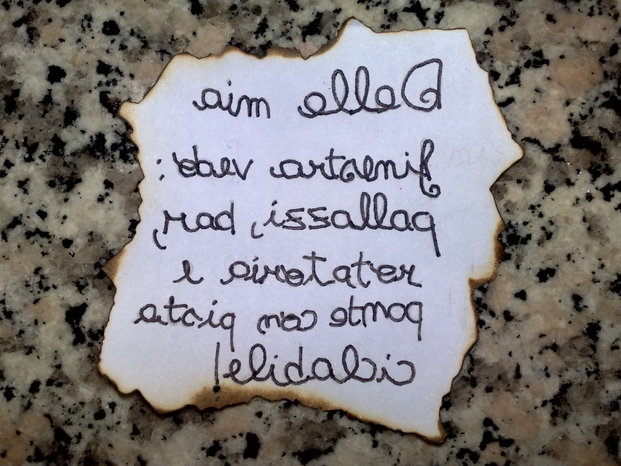 Dalla mia
finestra vedo:
palazzi, bar,
e
ponte con pista
ciclabile!